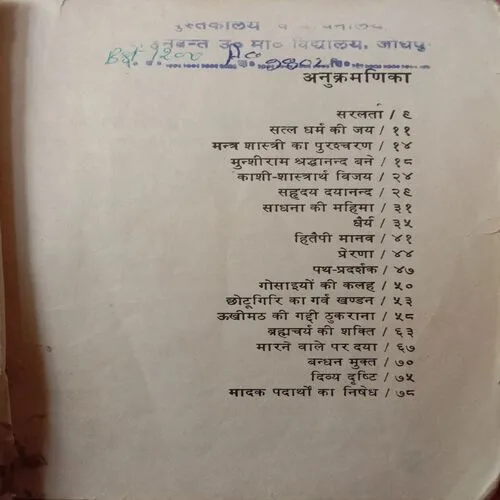 पुस्तकालय व वाचनालय
हनुवन्त उ० मा० विद्यालय, जोधपुर
अनुक्रमणिका
सरलता / ९
सत्य धर्म की जय / ११
मन्त्र शास्त्री का पुरश्चरण / १४
मुन्शीराम श्रद्धानन्द बने / १८
काशी-शास्त्रार्थ विजय / २४
सहृदय दयानन्द / २९
साधना की महिमा / ३१
धैर्य / ३५
हितैषी मानव / ४१
प्रेरणा / ४४
पथ-प्रदर्शक / ४७
गोसाइयों की कलह / ५०
छोटूगिरि का गर्व खण्डन / ५३
ऊखीमठ की गद्दी ठुकराना / ५८
ब्रह्मचर्य की शक्ति / ६३
मारने वाले पर दया / ६७
बन्धन मुक्त / ७०
दिव्य दृष्टि / ७५
मादक पदार्थों का निषेध / ७८